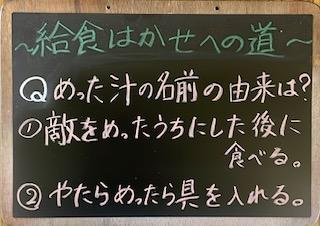 ～給食はかせへの道～
Qめった汁の名前の由来は?
①敵をめったうちにした後に
食べる。
②やたらめったら具を入れる。